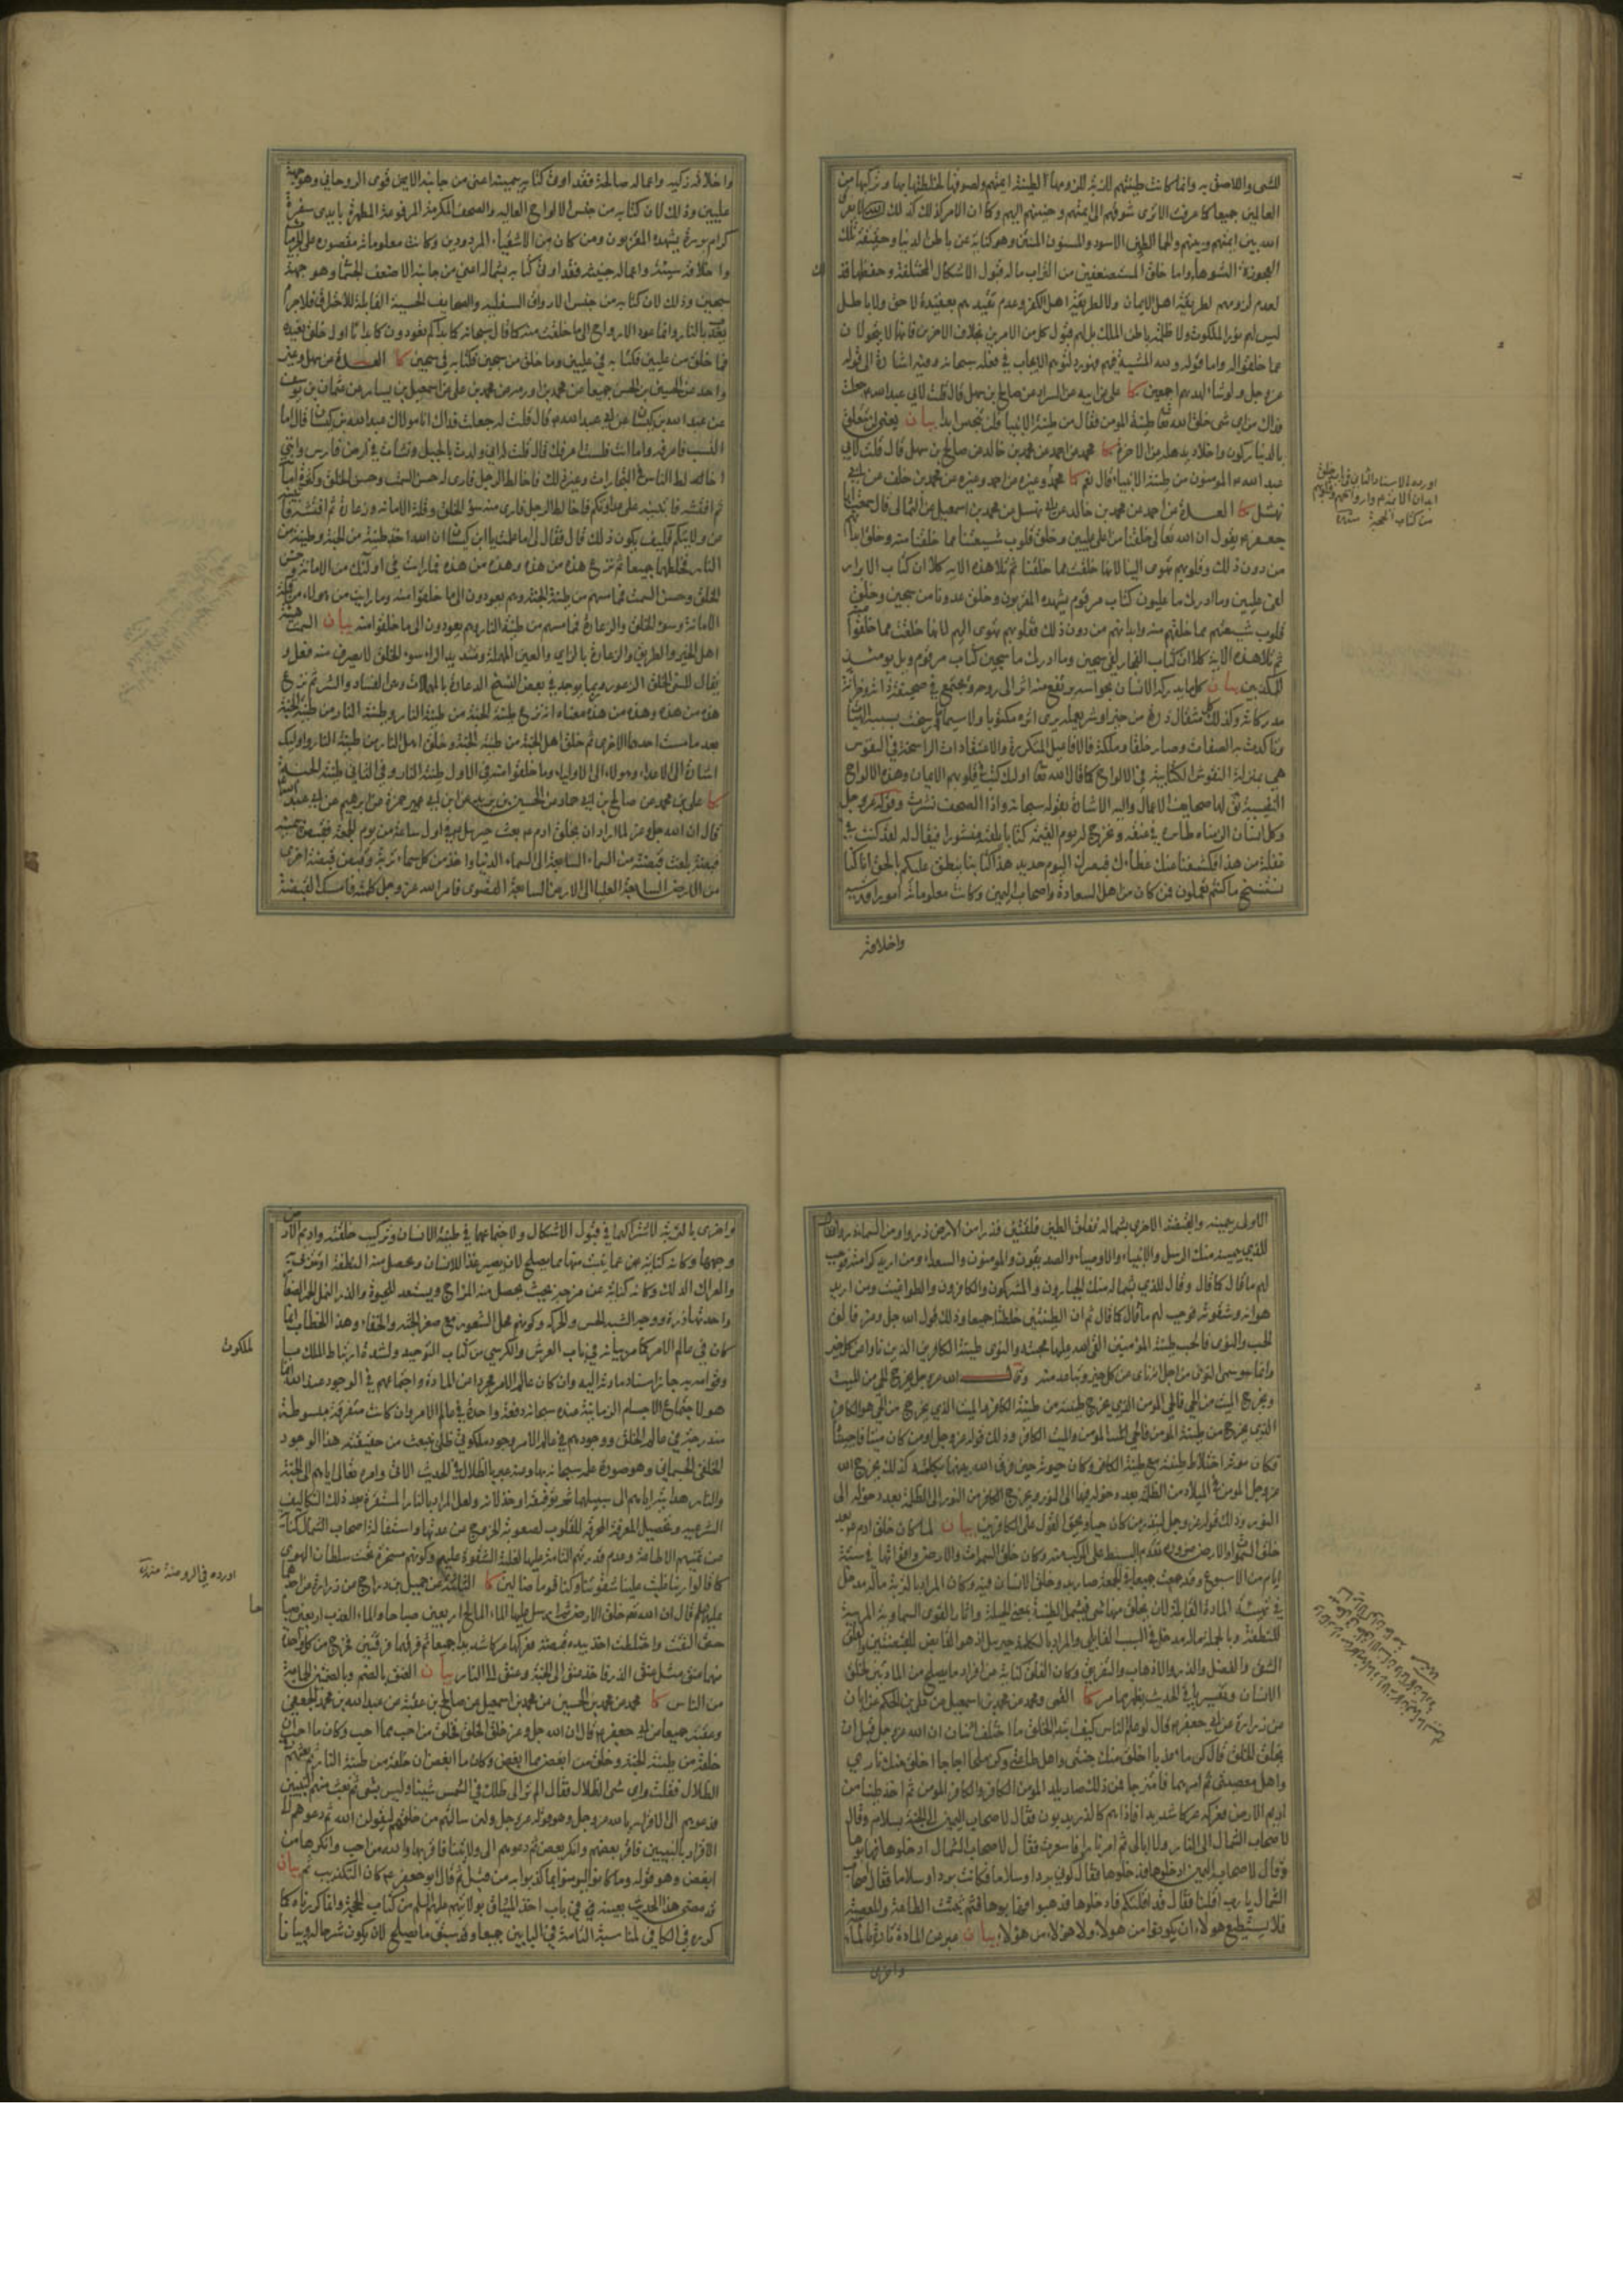 للشئ واللاصق به وانما كانت طينتهم اللازبة للزومها لطينة ائمتهم ولصوقها بها لخلطتها بها وتركبها من
العالمين جميعا كما عرفت الا ترى شوقهم الى ائمتهم وحنينهم اليهم وكما ان الامر كذلك كذلك لا يفرق
الله بين ائمتهم وبينهم والحمأ الطين الاسود والمسنون المنتن وهو كناية عن باطن الدنيا وحقيقة تلك
العجوزة الشوهاء واما خلق المستضعفين من التراب ما له قبول الاشكال المختلفة وحفظها فذلك
لعدم لزومهم لطريقة اهل الايمان ولا لطريقة اهل الكفر وعدم تقيدهم بعقيدة لا حق ولا باطل
ليس لهم نور الملكوت ولا ظلمة باطن الملك بل لهم قبول كل من الامرين بخلاف الاخرين فانها لا يتحولان
عما خلقوا له واما قوله ولله المشية فيهم فهو رد لتوهم الايجاب في فعله سبحانه وفيه اشارة الى قوله
عز وجل ولو شاء لهديهم اجمعين كا علي عن ابيه عن السراد عن صالح بن سهل قال قلت لابي عبد الله ع جعلت
فداك من اي شئ خلق الله تعالى طينة المومن فقال من طينة الانبياء فلن تنجس ابدا بيان يعني لن تتعلق
بالدنيا بركون واخلاد يذهله عن الاخرة كا محمد عن احمد عن محمد بن خالد عن صالح بن سهل قال قلت لابي
عبد الله ع المومنون من طينة الانبياء قال نعم كا محمد وغيره عن احمد وغيره عن محمد بن خلف عن ابي
نهشل كا العدة عن احمد عن محمد بن خالد عن ابي نهشل عن محمد بن اسمعيل عن الثمالي قال سمعت ابا
جعفر ع يقول ان الله تعالى خلقنا من اعلى عليين وخلق قلوب شيعتنا مما خلقنا منه وخلق ابدانهم
من دون ذلك وقلوبهم تهوى الينا لانها خلقت مما خلقنا ثم تلا هذه الاية كلا ان كتاب الابرار
لفي عليين وما ادريك ما عليون كتاب مرقوم يشهده المقربون وخلق عدونا من سجين وخلق
قلوب شيعتهم مما خلقهم منه وابدانهم من دون ذلك فقلوبهم تهوى اليهم لانها خلقت مما خلقوا منه
ثم تلا هذه الاية كلا ان كتاب الفجار لفي سجين وما ادريك ما سجين كتاب مرقوم ويل يومئذ
للمكذبين بيان كل ما يدركه الانسان بحواسه يرتفع منه اثر الى روحه ويجتمع في صحيفة ذاته وخزانة
مدركاته وكذلك كل مثقال ذرة من خير او شر يعمله يرى اثره مكتوبا ولا سيما ما رسخت بسببه الهيئات
وتاكدت به الصفات وصار خلقا وملكة فالافاعيل المتكررة والاعتقادات الراسخة في النفوس
هي بمنزلة النقوش الكتابية في الالواح كما قال الله تعالى اولئك كتب في قلوبهم الايمان وهذه الالواح
النفسية يقال لها صحايف الاعمال واليه الاشارة بقوله سبحانه واذا الصحف نشرت وقوله عز وجل
وكل انسان الزمناه طائره في عنقه ونخرج له يوم القيمة كتابا يلقيه منشورا فيقال له لقد كنت في
غفلة من هذا فكشفنا عنك غطاءك فبصرك اليوم حديد هذا كتابنا ينطق عليكم بالحق انا كنا
نستنسخ ما كنتم تعملون فمن كان من اهل السعادة واصحاب اليمين وكانت معلوماته امورا قدسية
واخلاقه
واخلاقه زكية واعماله صالحة فقد اوتي كتابه بيمينه اعني من جانبه الايمن قوى الروحاني وهو جهة
عليين وذلك لان كتابه من جنس الالواح العالية والصحف المكرمة المرفوعة المطهرة بايدي سفرة
كرام بررة يشهده المقربون ومن كان من الاشقياء المردودين وكانت معلوماته مقصورة على الجرميات
واخلاقه سيئة واعماله خبيثة فقد اوتي كتابه بشماله اعني من جانبه الاضعف الجسماني وهو جهة
سجين وذلك لان كتابه من جنس الاوراق السفلية والصحايف الحسية القابلة للاحتراق فلا جرم
يعذب بالنار وانما عود الارواح الى ما خلقت منه كما قال سبحانه كما بدأكم تعودون كما بدأنا اول خلق نعيده
فما خلق من عليين فكتابه في عليين وما خلق من سجين فكتابه في سجين كا العدة عن سهل وغير
واحد عن الحسين بن الحسن جميعا عن محمد بن اورمه عن محمد بن علي عن اسمعيل بن يسار عن عثمان بن يوسف
عن عبد الله بن كيسان عن ابي عبد الله ع قال قلت له جعلت فداك انا مولاك عبد الله بن كيسان قال اما
النسب فاعرفه واما انت فلست اعرفك قال قلت له اني ولدت بالجبل ونشأت في ارض فارس وانني
اخالط الناس في التجارات وغير ذلك فاخالط الرجل فارى له حسن السمت وحسن الخلق وكثرة امانة
ثم افتشه فاتبينه عن عداوتكم فاخالط الرجل فارى منه سوء الخلق وقلة الامانة وزعارة ثم افتشه فاتبينه
عن ولايتكم فكيف يكون ذلك قال فقال لي اما علمت يا ابن كيسان ان الله اخذ طينة من الجنة وطينة من
النار فخلطهما جميعا ثم نزع هذه من هذه وهذه من هذه فما رايت في اولئك من الامانة وحسن
الخلق وحسن السمت فمما مستهم من طينة الجنة وهم يعودون الى ما خلقوا منه وما رايت من هؤلاء من قلة
الامانة وسوء الخلق والزعارة فمما مستهم من طينة النار وهم يعودون الى ما خلقوا منه بيان السمت هيئة
اهل الخير والطريق والزعارة بالزاي والعين المهملة وتشديد الراء سوء الخلق لا يصرف منه فعل و
يقال للسئ الخلق الزعرور وربما يوجد في بعض النسخ الدعارة بالمهملات وهي الفساد والشر ثم نزع
هذه من هذه وهذه من هذه معناه انه نزع طينة الجنة من طينة النار وطينة النار من طينة الجنة
بعد ما مست احديهما الاخرى ثم خلق اهل الجنة من طينة الجنة وخلق اهل النار من طينة النار واولئك
اشارة الى الاعداء وهؤلاء الى الاولياء وما خلقوا منه في الاول طينة النار وفي الثاني طينة الجنة
كا علي بن محمد عن صالح بن ابي حماد عن الحسين بن يزيد عن ابن ابي حمزة عن ابراهيم عن ابي عبد الله ع
قال ان الله جل وعز لما اراد ان يخلق ادم ع بعث جبرئيل ع في اول ساعة من يوم الجمعة فقبض بيمينه
قبضة بلغت قبضته من السماء السابعة الى السماء الدنيا واخذ من كل سماء تربة وقبض قبضة اخرى
من الارض السابعة العليا الى الارض السابعة القصوى فامر الله عز وجل كلمته فامسك القبضة
الاولى بيمينه والقبضة الاخرى بشماله ففلق الطين فلقتين فذرا من الارض ذروا ومن السماء ذروا فقال
للذي بيمينه منك الرسل والانبياء والاوصياء والصديقون والمومنون والسعداء ومن اريد كرامته فوجب
لهم ما قال كما قال وقال للذي بشماله منك الجبارون والمشركون والكافرون والطواغيت ومن اريد
هوانه وشقوته فوجب لهم ما قال كما قال ثم ان الطينتين خلطتا جميعا وذلك قول الله جل وعز فالق
الحب والنوى فالحب طينة المؤمنين القى الله عليها محبته والنوى طينة الكافرين الذين ناوا عن كل خير
وانما سمي النوى من اجل انه نأى عن كل خير وتباعد منه وقال الله عز وجل يخرج الحي من الميت
ويخرج الميت من الحي فالحي المومن الذي يخرج طينته من طينة الكافر والميت الذي يخرج من الحي هو الكافر
الذي يخرج من طينة المومن فالحي المومن والميت الكافر وذلك قوله عز وجل او من كان ميتا فاحييناه
فكان موته اختلاط طينته مع طينة الكافر وكان حيوته حين فرق الله بينهما بكلمته كذلك يخرج الله
عز وجل المومن في الميلاد من الظلمة بعد دخوله فيها الى النور ويخرج الكافر من النور الى الظلمة بعد دخوله الى
النور وذلك قوله عز وجل لينذر من كان حيا ويحق القول على الكافرين بيان لما كان خلق ادم ع بعد
خلق السموات والارض ضرورة تقدم البسيط على المركب منه وكان خلق السموات والارض واقواتها في ستة
ايام من الاسبوع وقد جمعت جميعا في الجمعة صار بدو خلق الانسان فيه وكان المراد بالتربة ماله مدخل
في تهيئة المادة القابلة لان يخلق منها شئ فيشمل الطينة بمعنى الجبلة واثار القوى السماوية المربية
للنطفة وبالجملة ماله مدخل في السبب القابلي والمراد بالكلمة جبرئيل اذ هو القابض للقبضتين والفلق
الشق والفصل والذرو الاذهاب والتفريق وكان الفلق كناية عن افراز ما يصلح من المادتين لخلق
الانسان وتفسير باقي الحديث يظهر مما مر كا القمي ومحمد عن محمد بن اسمعيل عن علي بن الحكم عن ابان
عن زرارة عن ابي جعفر ع قال لو علم الناس كيف ابتداء الخلق ما اختلف اثنان ان الله عز وجل قبل ان
يخلق الخلق قال كن ماء عذبا اخلق منك جنتي واهل طاعتي وكن ملحا اجاجا اخلق منك ناري
واهل معصيتي ثم امرهما فامتزجا فمن ذلك صار يلد المومن الكافر والكافر المومن ثم اخذ طينا من
اديم الارض فعركه عركا شديدا فاذا هم كالذر يدبون فقال لاصحاب اليمين الى الجنة بسلام وقال
لاصحاب الشمال الى النار ولا ابالي ثم امر نارا فاسعرت فقال لاصحاب الشمال ادخلوها فهابوها
وقال لاصحاب اليمين ادخلوها فدخلوها فقال كوني بردا وسلاما فكانت بردا وسلاما فقال اصحاب
الشمال يا رب اقلنا فقال قد اقلتكم فادخلوها فذهبوا فهابوها فثم ثبتت الطاعة والمعصية
فلا يستطيع هؤلاء ان يكونوا من هؤلاء ولا هؤلاء من هؤلاء بيان عبر عن المادة تارة بالماء
واخرى
واخرى بالتربة لاشتراكهما في قبول الاشكال ولاجتماعهما في طينة الانسان وتركيب خلقته واديم الارض
وجهها وكانه كناية عن ما ينبت منها مما يصلح لان يصير غذاء للانسان ويحصل منه النطفة او تتربى به
والعرك الدلك وكانه كناية عن مزجه بحيث يحصل منه المزاج ويستعد للحيوة والذر النمل الحمر الصغار
واحدتها ذرة ووجه الشبه الحس والحركة وكونهم محل الشعور مع صغر الجثة والخفاء وهذا الخطاب انما
كان في عالم الامر كما مر بيانه في باب العرش والكرسي من كتاب التوحيد ولشدة ارتباط الملك بالملكوت
وقوامه به جاز اسناد مادته اليه وان كان عالم الامر مجردا عن المادة واجتماعهم في الوجود عند الله انما
هو لاجتماع الاجسام الزمانية عنده سبحانه دفعة واحدة في عالم الامر وان كانت متفرقة مبسوطة
متدرجة في عالم الخلق ووجودهم في عالم الامر وجود ملكوتي ظلي ينبعث من حقيقته هذا الوجود
الخلقي الجسماني وهو صورة علمه سبحانه بها ومنه عبر بالظلال في الحديث الاتي وامره تعالى اياهم الى الجنة
والنار هدايته اياهم الى سبيلهما ثم توفيقه او خذلانه ولعل المراد بالنار المسعرة بعد ذلك التكاليف
الشرعية وتحصيل المعرفة المحرقة للقلوب لصعوبة الخروج من عهدتها واستقالة اصحاب الشمال كناية
عن تمنيهم الاطاعة وعدم قدرتهم التامة عليها لغلبة الشقوة عليهم وكونهم مسخرة تحت سلطان الهوى
كما قالوا ربنا غلبت علينا شقوتنا وكنا قوما ضالين كا الثلاثة عن جميل بن دراج عن زرارة عن احدهما
عليهما السلم قال ان الله تعالى خلق الارض ثم ارسل عليها الماء المالح اربعين صباحا والماء العذب اربعين صباحا
حتى التقت واختلطت اخذ بيده قبضة فعركها عركا شديدا جميعا ثم فرقها فرقتين فخرج من كل واحدة
منهما عنق مثل عنق الذر فاخذ عنق الى الجنة وعنق الى النار بيان العنق بالضم وبالضمتين الجماعة
من الناس كا محمد عن محمد بن الحسين عن محمد بن اسمعيل عن صالح بن عقبة عن عبد الله بن محمد الجعفي
وعقبة جميعا عن ابي جعفر ع قال ان الله جل وعز خلق الخلق فخلق من احب مما احب وكان ما احب ان
خلقه من طينة الجنة وخلق من ابغض مما ابغض وكان ما ابغض ان خلقه من طينة النار ثم بعثهم في
الظلال فقلت واي شئ الظلال فقال الم تر الى ظلك في الشمس شيئا وليس بشئ ثم بعث منهم النبيين
فدعوهم الى الاقرار بالله عز وجل وهو قوله عز وجل ولئن سالتهم من خلقهم ليقولن الله ثم دعوهم الى
الاقرار بالنبيين فاقر بعضهم وانكر بعض ثم دعوهم الى ولايتنا فاقر بها والله من احب وانكرها من
ابغض وهو قوله وما كانوا ليؤمنوا بما كذبوا به من قبل ثم قال ابو جعفر ع كان التكذيب ثم بيان
قد مضى هذا الحديث بعينه في باب اخذ الميثاق بولايتهم عليهم السلم من كتاب الحجة وانما كررناه كما
كرره في الكافي لمناسبته التامة في البابين جميعا وقد سبق ما يصلح لان يكون شرحا له وبيانا
للملكوت
اورده في الروضة منه